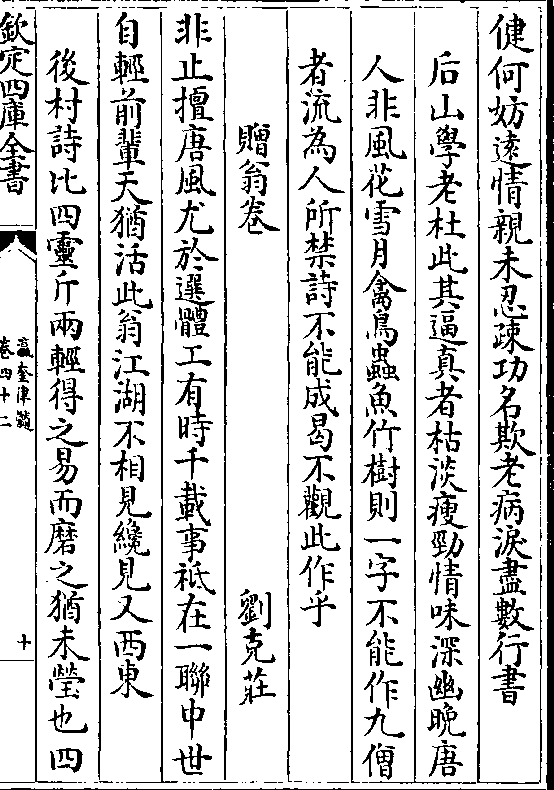 健何妨逺情親未忍疎功名欺老病淚盡數行書
后山學老杜此其逼真者枯淡瘦勁情味深幽晚唐
人非風花雪月禽鳥蟲魚竹樹則一字不能作九僧
者流為人所禁詩不能成曷不觀此作乎
贈翁卷　劉克莊
非止擅唐風尤於選體工有時千載事祗在一聯中世
自輕前輩天猶活此翁江湖不相見纔見又西東
後村詩比四靈斤兩輕得之易而磨之猶未瑩也四
欽定四庫全書
瀛奎律髓
卷四十二
十